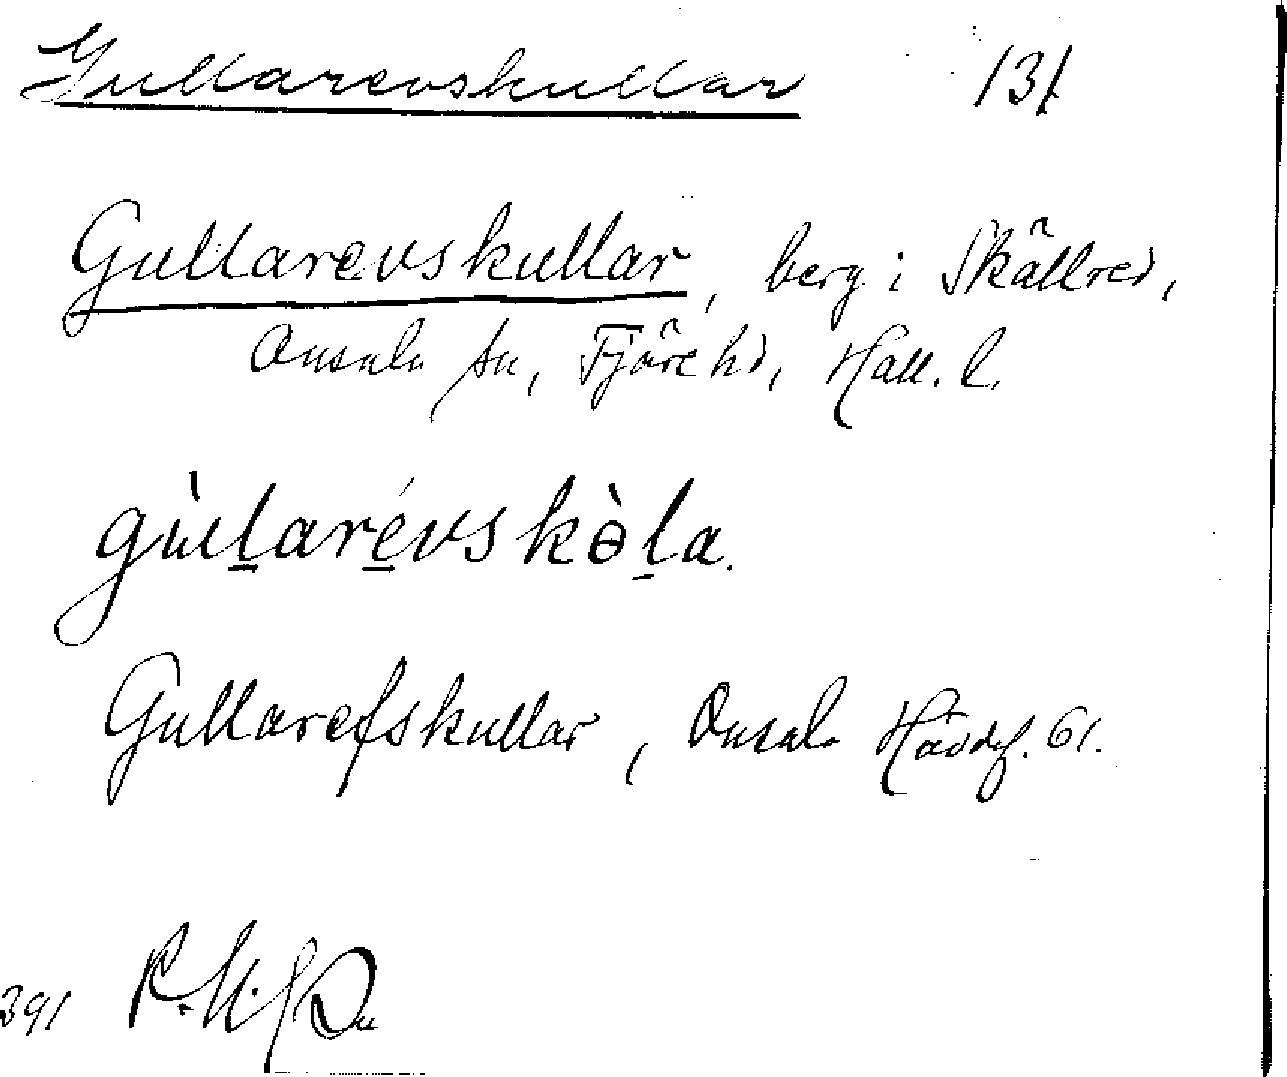 Gullarevskullar 131
Gullarevskullar, berg i Skällred,
Onsala sn, Fjäre hd, Hall. l.
gùḻarévskòḻa.
Gullarefskullar, Onsala Hävdef. 61.
391